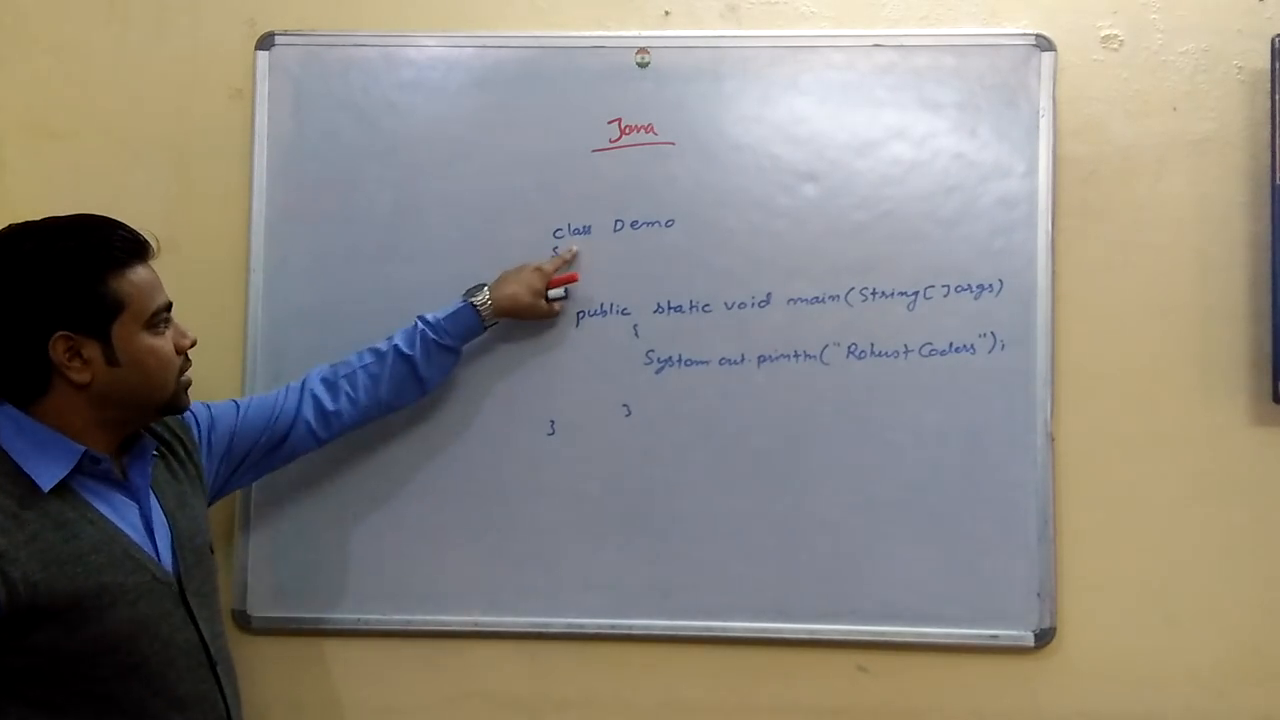 Java
class Demo
{
public static void main(String[]args)
{
System.out.println("Robust Coders");
}
}